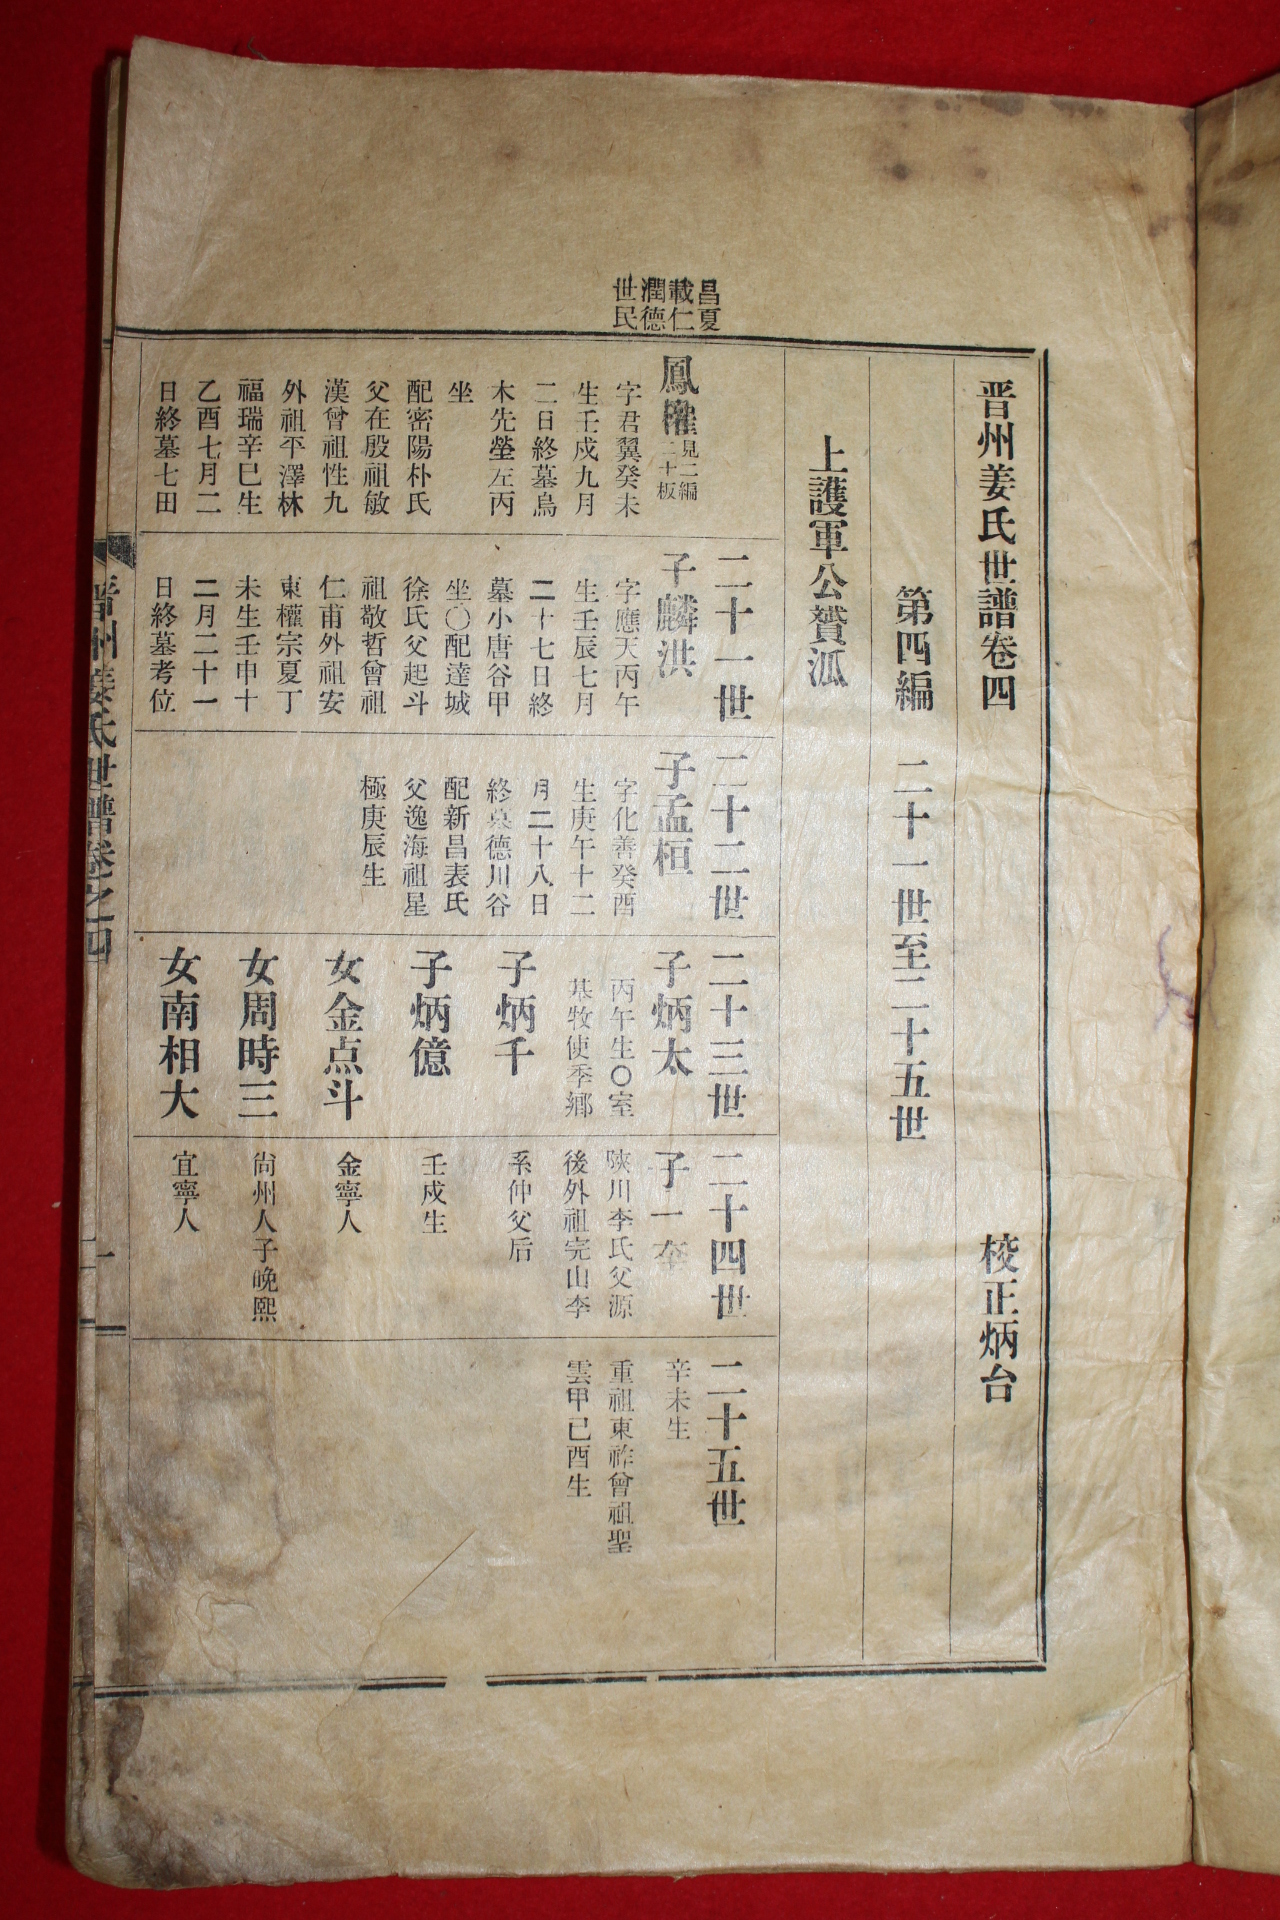 晋州姜氏世譜卷四
校正炳台
第四編
二十一世至二十五世
上護軍公贇派
昌夏
載仁
潤德
世民
鳳權
見二編
二十板
字君翼癸未
生壬戌九月
二日終墓烏
木先塋左丙
坐
配密陽朴氏
父在殷祖敏
漢曾祖性九
外祖平澤林
福瑞辛巳生
乙酉七月二
日終墓七田
二十一世
子麟洪
字應天丙午
生壬辰七月
二十七日終
墓小唐谷甲
坐〇配達城
徐氏父起斗
祖敬哲曾祖
仁甫外祖安
東權宗夏丁
未生壬申十
二月二十一
日終墓考位
二十二世
子孟桓
字化善癸酉
生庚午十二
月二十八日
終墓德川谷
配新昌表氏
父逸海祖星
極庚辰生
二十三世
子炳太
丙午生〇室
基牧使季鄉
子炳千
子炳億
女金点斗
女周時三
女南相大
二十四世
子一奎
陜川李氏父源
後外祖完山李
系仲父后
壬戌生
金寧人
尙州人子晚熙
宜寧人
二十五世
辛未生
重祖東祚曾祖聖
雲甲己酉生
晋州姜氏世譜卷之四
一